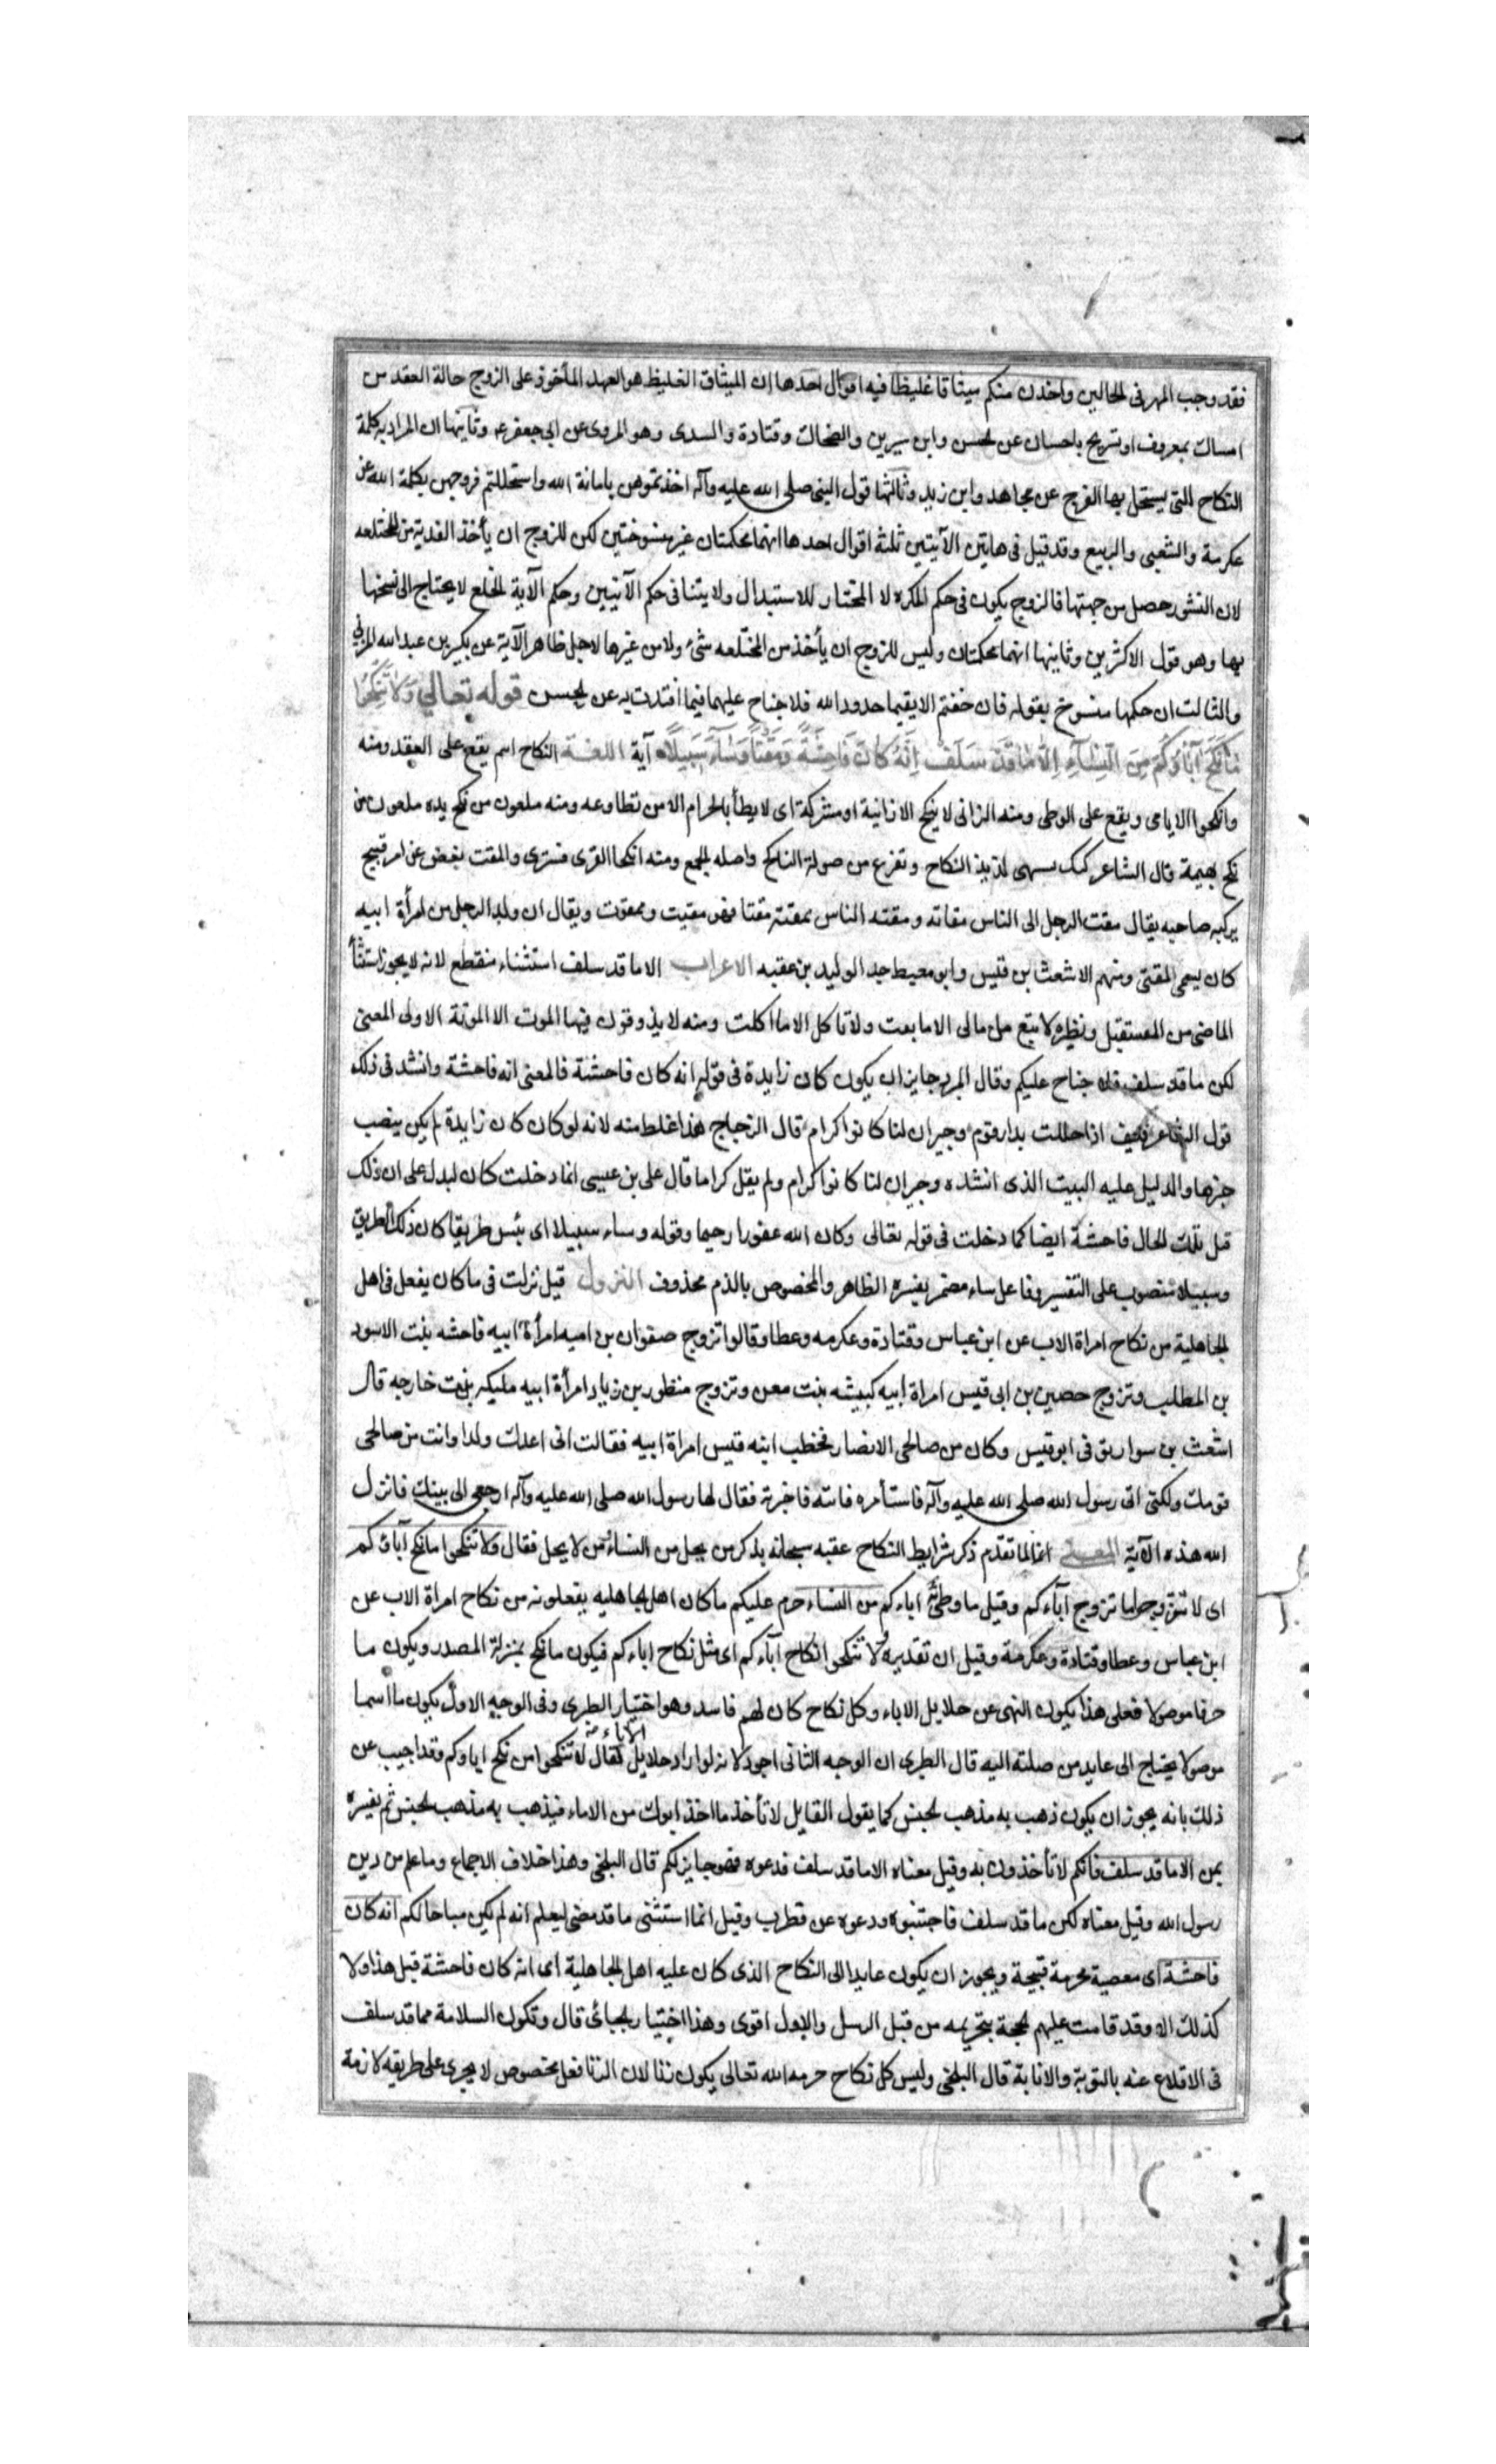 فقد وجب المهر فى الحالين واخذن منكم ميثاقا غليظا فيه اقوال احدها ان الميثاق الغليظ هو العهد المأخوذ على الزوج حالة العقد من
امساك بمعروف او تسريح باحسان عن الحسن وابن سيرين والضحاك وقتادة والسدى وهو المروى عن ابى جعفر ع وثانيها ان المراد به كلمة
النكاح التى يستحل بها الفرج عن مجاهد وابن زيد وثالثها قول النبى صلى الله عليه وآله اخذتموهن بامانة الله واستحللتم فروجهن بكلمة الله عن
عكرمة والشعبى والربيع وقد قيل فى هاتين الآيتين ثلثة اقوال احدها انهما محكمتان غير منسوختين لكن للزوج ان يأخذ الفدية من المختلعه
لان النشوز حصل من جهتها فالزوج يكون فى حكم المكره لا المختار للاستبدال ولا يتنافى حكم الآيتين وحكم الآية الخلع لا يحتاج الى نسخها
بها وهو قول الاكثرين وثانيها انهما محكمتان وليس للزوج ان يأخذ من المختلعه شئ ولا من غيرها لاجل ظاهر الآية عن بكير بن عبد الله المزنى
والثالث ان حكمها منسوخ بقوله فان خفتم الا يقيما حدود الله فلا جناح عليهما فيما افتدت به عن الحسن قوله تعالى وَلَا تَنْكِحُوا
مَا نَكَحَ آبَاؤُكُمْ مِنَ النِّسَاءِ إِلَّا مَا قَدْ سَلَفَ إِنَّهُ كَانَ فَاحِشَةً وَمَقْتًا وَسَاءَ سَبِيلًا آية اللغة النكاح اسم يقع على العقد ومنه
وانكحوا الايامى ويقع على الوطى ومنه الزانى لا ينكح الا زانية او مشركة اى لا يطأ بالحرام الا من تطاوعه ومنه ملعون من نكح يده ملعون من
نكح بهيمة قال الشاعر لذيذ النكاح وتفزع من صولة الناكح واصله الجمع ومنه انكحنا الفرى فسنرى والمقت بغض عن امر قبيح
يركبه صاحبه يقال مقت الرجل الى الناس مقاته ومقته الناس يمقته مقتا فهو مقيت وممقوت ويقال ان ولد الرجل من امرأة ابيه
كان يسمى المقتى ومنهم الاشعث بن قيس وابو معيط جد الوليد بن عقبه الاعراب الا ما قد سلف استثناء منقطع لانه لا يجوز استثنأ
الماضى من المستقبل ونظيره لا تبع من مالى الا ما بعت ولا تاكل الا ما اكلت ومنه لا يذوقون فيها الموت الا الموتة الاولى المعنى
لكن ما قد سلف فلا جناح عليكم وقال المبرد جايز ان يكون كان زايدة فى قوله انه كان فاحشة فالمعنى انه فاحشة وانشد فى ذلك
قول الشاعر فكيف اذا حللت بدار قوم وجيران لنا كانوا كرام قال الزجاج هذا غلط منه لانه لو كان كان زايدة لم يكن ينصب
خبرها والدليل عليه البيت الذى انشده وجيران لنا كانوا كرام ولم يقل كراما قال على بن عيسى انما دخلت كان ليدل على ان ذلك
قبل تلك الحال فاحشة ايضا كما دخلت فى قوله تعالى وكان الله غفورا رحيما وقوله وساء سبيلا اى بئس طريقا كان ذلك الطريق
وسبيلا منصوب على التفسير وفاعل ساء مضمر يفسره الظاهر والمخصوص بالذم محذوف النزول قيل نزلت فى ما كان يفعل فى اهل
الجاهلية من نكاح امراة الاب عن ابن عباس وقتادة وعكرمه وعطا وقالوا تزوج صفوان بن اميه امرأة ابيه فاحشه بنت الاسود
بن المطلب وتزوج حصين بن ابى قيس امراة ابيه كبيشه بنت معن وتزوج منظور بن زياد امرأة ابيه مليكه بنت خارجه قال
اشعث بن سوار توفى ابو قيس وكان من صالحى الانصار فخطب ابنه قيس امراة ابيه فقالت انى اعدك ولدا وانت من صالحى
قومك ولكنى اتى رسول الله صلى الله عليه وآله فاستأمره فاتته فاخبرته فقال لها رسول الله صلى الله عليه وآله ارجعى الى بيتك فانزل
الله هذه الآية المعنى لما تقدم ذكر شرايط النكاح عقبه سبحانه بذكر من يحل من النساء ومن لا يحل فقال ولا تنكحوا ما نكح آباؤكم
اى لا تتزوجوا ما تزوج آباءكم وقيل ما وطئ اباءكم من النساء حرم عليكم ما كان اهل الجاهليه يفعلونه من نكاح امراة الاب عن
ابن عباس وعطا وقتادة وعكرمة وقيل ان تقديره ولا تنكحوا نكاح آباءكم اى مثل نكاح اباءكم فيكون ما نكح بمنزلة المصدر ويكون ما
حرفا موصولا فعلى هذا يكون النهى عن حلايل الاباء وكل نكاح كان لهم فاسد وهو اختيار الطبرى وفى الوجه الاول يكون ما اسما
موصولا يحتاج الى عايد من صلته اليه قال الطبرى ان الوجه الثانى اجود لانه لو اراد حلايل الآباء لقال لا تنكحوا من نكح اباوكم وقد اجيب عن
ذلك بانه يجوز ان يكون ذهب به مذهب الجنس كما يقول القايل لا تأخذ ما اخذ ابوك من الاماء فيذهب به مذهب الجنس ثم يفسره
بمن الا ما قد سلف فانكم لا تأخذون به وقيل معناه الا ما قد سلف فدعوه فهو جايز لكم قال البلخى وهذا خلاف الاجماع وما علم من دين
رسول الله وقيل معناه لكن ما قد سلف فاجتنبوه ودعوه عن قطرب وقيل انما استثنى ما قد مضى ليعلم انه لم يكن مباحا لكم انه كان
فاحشة اى معصية محرمة قبيحة ويجوز ان يكون عايدا الى النكاح الذى كان عليه اهل الجاهلية اى انه كان فاحشة قبل هذا ولا
كذلك الا وقد قامت عليهم الحجة بتحريمه من قبل الرسل والاول اقوى وهذا اختيار الجبائى قال وتكون السلامة مما قد سلف
فى الاقلاع عنه بالتوبة والانابة قال البلخى وليس كل نكاح حرمه الله تعالى يكون زنا لان الزنا فعل مخصوص لا يجرى على طريقه لازمة